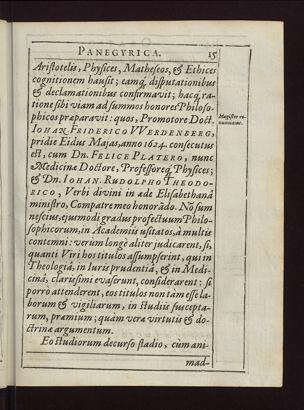 PANEGYRICA. 15
Aristotelis, Physices, Matheseos, & Ethices
cognitionem hausit; eamq́; disputationibus
& declamationibus confirmavit; hacq́, ra-
tione sibi viam ad summos honores Philoso-
phicos præparavit: quos, Promotore Doct.
IOHAN. FRIDERICO VVERDENBERG,
pridie Eidus Majas, anno 1624. consecutus
est, cum Dn. FELICE PLATERO, nunc
Medicinæ Doctore, Professoreq́; Physices;
& Dn. IOHAN. RUDOLPHO THEODO-
RICO, Verbi divini in æde Elisabethanâ
ministro, Compatre meo honorãdo. Nõ sum
nescius, ejusmodi gradus profectuum Philo-
sophicorum, in Academiis usitatos, à multis
contemni: verùm longè aliter judicarent, si,
quanti Viri hos titulos assumpserint, qui in
Theologiâ, in Iuris prudentiâ, & in Medi-
cinâ, clarissimi evaserunt, considerarent: si
porrò attenderent, eos titulos non tàm esse la-
borum & vigiliarum, in studiis suscepta-
rum, præmium; quàm veræ virtutis & do-
ctrinæ argumentum.
Eo studiorum decurso stadio, cùm ani-
mad-
Magister re-
nunciatur.